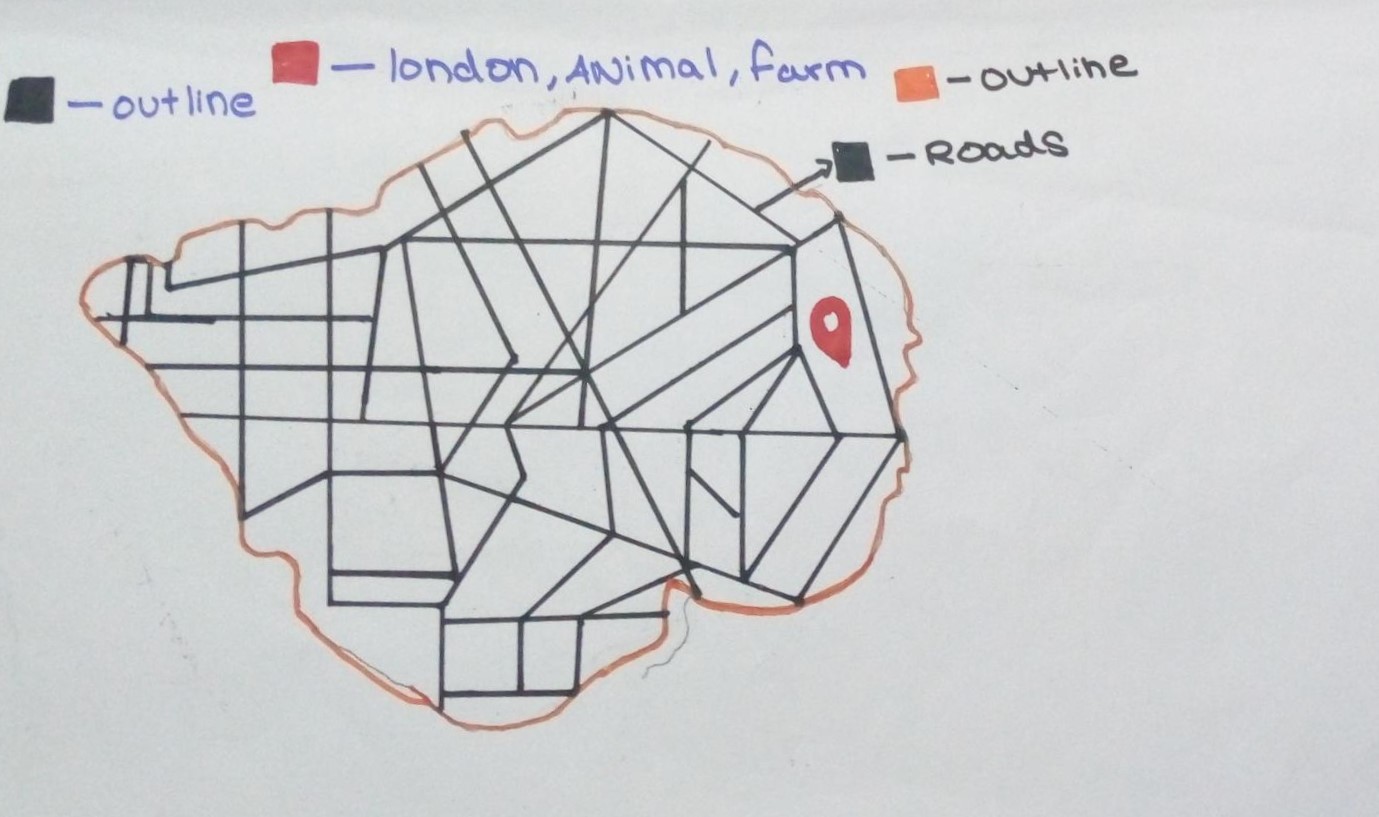 — outline
— london, ANimal, farm
- outline
- Roads